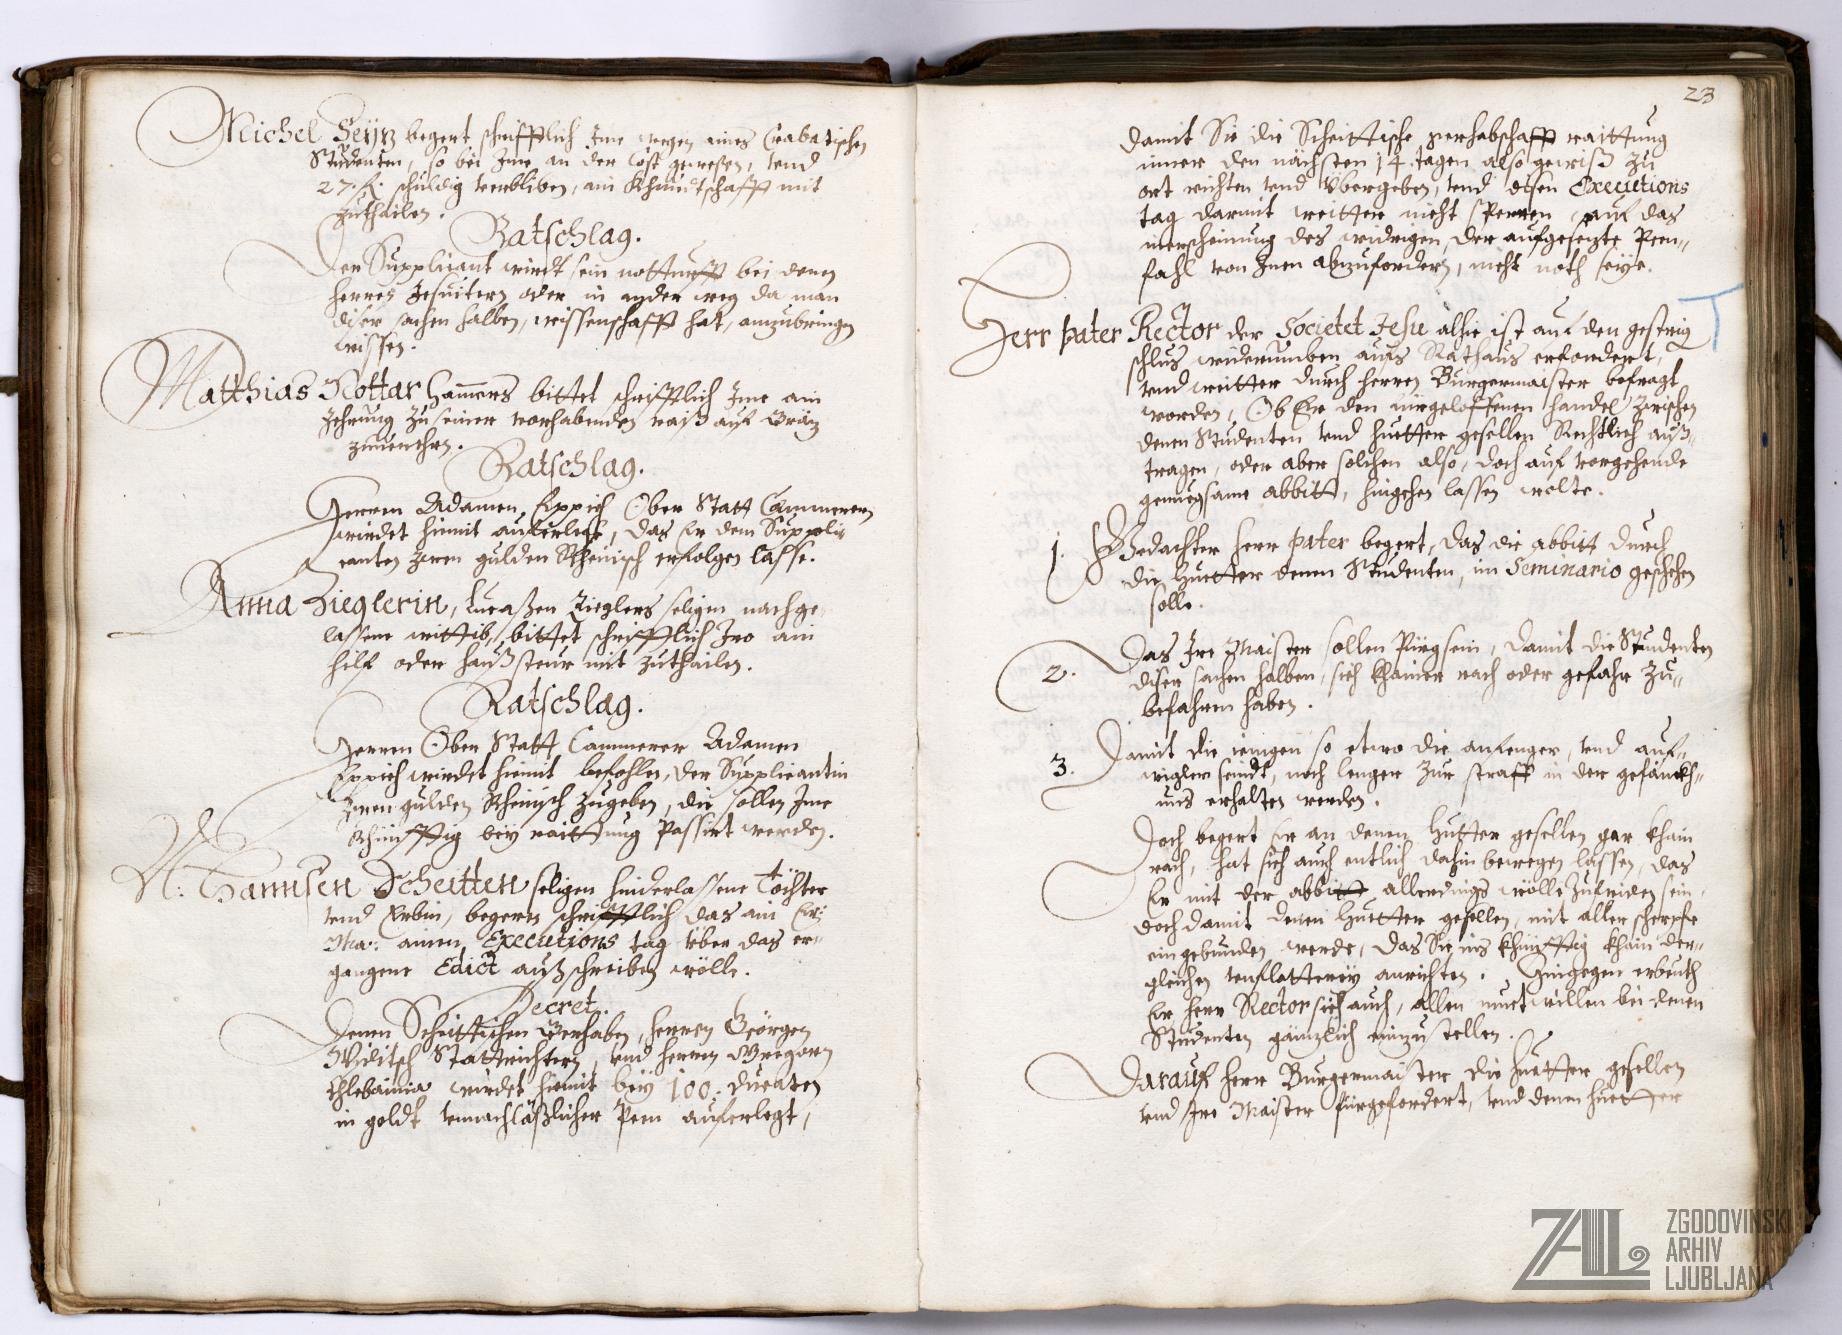 Michel Seÿz begert schrifftlich Ime wegen eines Crabatischen
Studenten, so bei Ime an der Cost gewesen, vnd
27. fl. schuldig verbliben, ain Khundtschafft mit
zuthailen.
Ratschlag.
Der Supplicant wirdt sein notturfft bei denen
herren Jesuitern oder in ander weg da man
diser sachen halben, wissenschafft hat, anzubringen
wissen.
Matthias Kottar bittet schrifftlich Ime ain
Zehrung zu seiner vorhabenden raiß auf Gräz
Ratschlag.
Herren Adamen Eppich Ober Statt Cammerern
wirdet hiemit auferlegt, das Er dem Suppli
canten zwen gulden Rheinisch erfolgen lasse.
Anna Zieglerin, Lucaßen Zieglers seligen nachge
lassene wittib, bittet schrifftlich Iro ain
hilf oder haußsteur mit zuthailen.
Ratschlag.
Herren Ober Statt Cammerer Adamen
Eppich wirdet hiemit befohlen, der Supplicantin
zwen gulden Rheinisch zugeben, die sollen Ime
khünfftig beÿ raittung Passirt werden.
N: Hannsen Scheitten seligen hinderlassene Töchter
vnd Erbin, begern schrifftlich das ain Er:
Ma: ainen Executions tag über das er=
gangene Edict außschreiben wölle.
Decret.
Denen Scheittischen Gerhaben, herren Geörgen
Stattrichtern, vnd herren Gregorn
Chlebaina wirdet hiemit beÿ 100. Ducaten
in goldt vnnachläßlicher Peen auferlegt,
23
damit Sie die Scheittische gerhabschafft raittung
inner den nächsten 14. tagen also gewiß zu
ort richten vnd Übergeben, vnd disen Executions
tag darmit weitter nicht sperren, auf das
verscheinung des widrigen, der aufgesezte Peen=
fahl von Inen abzufordern, nicht noth seÿe.
Herr pater Rector der Societet Jesu alhie ist auf den gestrig
schlus widerumben aufs Rathaus erfordert,
vnd weitter durch herren Burgermaister befragt
worden, Ob Er den fürgeloffenen handel zwischen
denen Studenten vnd huetter gesellen Rechtlich auß=
tragen, oder aber solchen also, doch auf vorgehende
genuegsame abbitt, hingehen lassen wolte.
1. Gedachter herr pater begert, das die abbitt durch
die huetter denen Studenten, im Seminario geschehen
solle.
2. Das Ire Maister sollen Pürg sein, damit die Studenten
diser sachen halben, sich khainer rach oder gefahr zu=
befahren haben.
3. Damit die ienigen so etwo die anfenger, vnd auf=
wigler seindt, noch lenger zur straff in der gefänckh=
nus erhalten werden.
Doch begert Er an denen Hutter gesellen gar khain
rach, hat sich auch entlich dahin bewegen lassen, das
Er mit der abbitt allerdings wölle zufriden sein,
doch damit denen Huetter gesellen, mit aller scherpfe
eingebunden werde, das Sie ins khünfftig khain der=
gleichen anrichten. Hingegen erbeuth
Er herr Rector sich auch, allen muetwillen bei denen
Studenten gänzlich einzustellen.
Darauf herr Burgermaister die Huetter gesellen
vnd Ire Maister fürgefordert, vnd denen huetter
ZAL
ZGODOVINSKI
ARHIV
LJUBLJANA